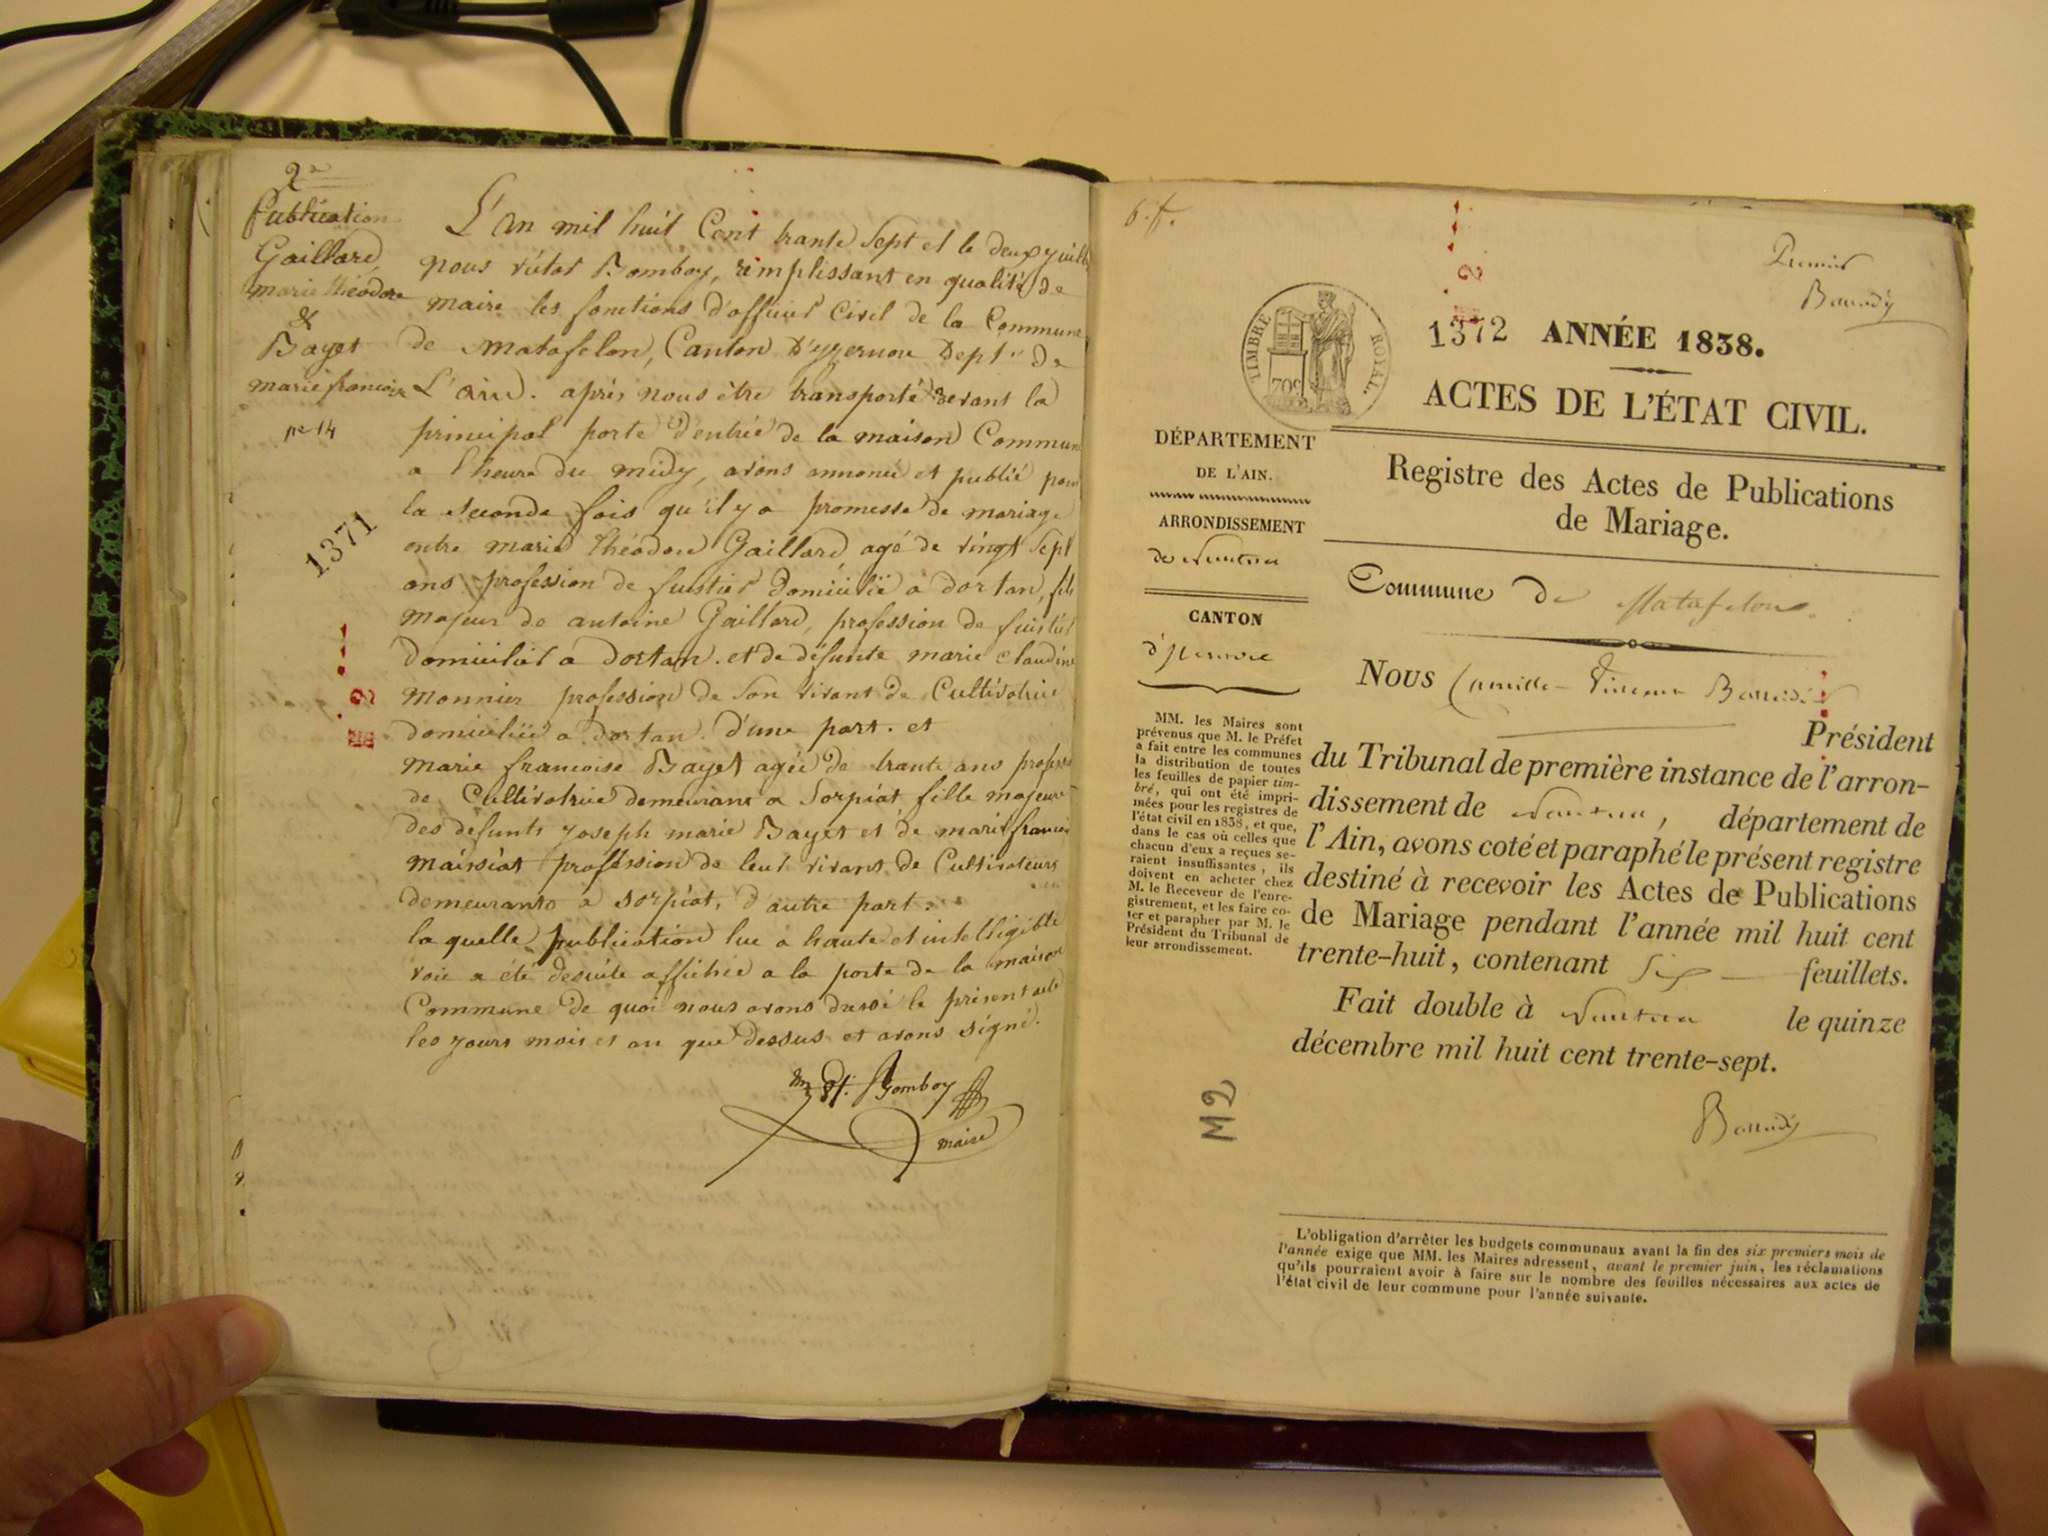 2e
Publication
Gaillard
marie théodore
&
Bayet
marie francoise
no 14
1371
L'An mil huit Cent trante Sept et le deux juillet
nous Bomboy, remplissant en qualité de
maire les fonctions d'officier Civil de la Commune
de Matafelon, Canton D'yzernore Dept de
L'ain. après nous être transporté devant la
principal porte d'entrée de la maison Commune
a l'heure du midy, avons annoncé et publié pour
la seconde fois qu'il y a promesse de mariage
entre marie théodore Gaillard, agé de vingt Sept
ans profession de fustier Domicilié a dortan, fils
majeur de antoine Gaillard, profession de fustier
Domicilié a Dortan. et de défunte marie claudine
monnier profession de Son vivant de Cultivatrice
domiciliée a dortan. D'une part. et
marie francoise Bayet agée de trante ans profession
de Cultivatrice demeurant a Sorpiat, fille majeure
des defunts joseph marie Bayet et de marie francoise
mairiat profession de leur vivant de Cultivateurs
demeurants a Sorpiat, d'autre part.
la quelle publication lue a haute et intelligible
voie a été desuite affichée a la porte de la maison
Commune de quoi nous avons dressé le présent acte
les jours mois et an que dessus et avons signé.
Bomboy
maire
6. f.
Premier
Baudy
TIMBRE ROYAL.
70c
1372 ANNÉE 1838.
ACTES DE L'ÉTAT CIVIL.
DÉPARTEMENT
DE L'AIN.
ARRONDISSEMENT
de Nantua
CANTON
d'Izernore
MM. les Maires sont
prévenus que M. le Préfet
a fait entre les communes
la distribution de toutes
les feuilles de papier tim-
bré, qui ont été impri-
mées pour les registres de
l'état civil en 1838, et que,
dans le cas où celles que
chacun d'eux a reçues se-
raient insuffisantes, ils
doivent en acheter chez
M. le Receveur de l'enre-
gistrement, et les faire co-
ter et parapher par M. le
Président du Tribunal de
leur arrondissement.
Registre des Actes de Publications
de Mariage.
Commune de Matafelon
Nous Camille Vincent
Président
du Tribunal de première instance de l'arron-
dissement de Nantua, département de
l'Ain, avons coté et paraphé le présent registre
destiné à recevoir les Actes de Publications
de Mariage pendant l'année mil huit cent
trente-huit, contenant Six feuillets.
Fait double à Nantua le quinze
décembre mil huit cent trente-sept.
M2
L'obligation d'arrêter les budgets communaux avant la fin des six premiers mois de
l'année exige que MM. les Maires adressent, avant le premier juin, les réclamations
qu'ils pourraient avoir à faire sur le nombre des feuilles nécessaires aux actes de
l'état civil de leur commune pour l'année suivante.